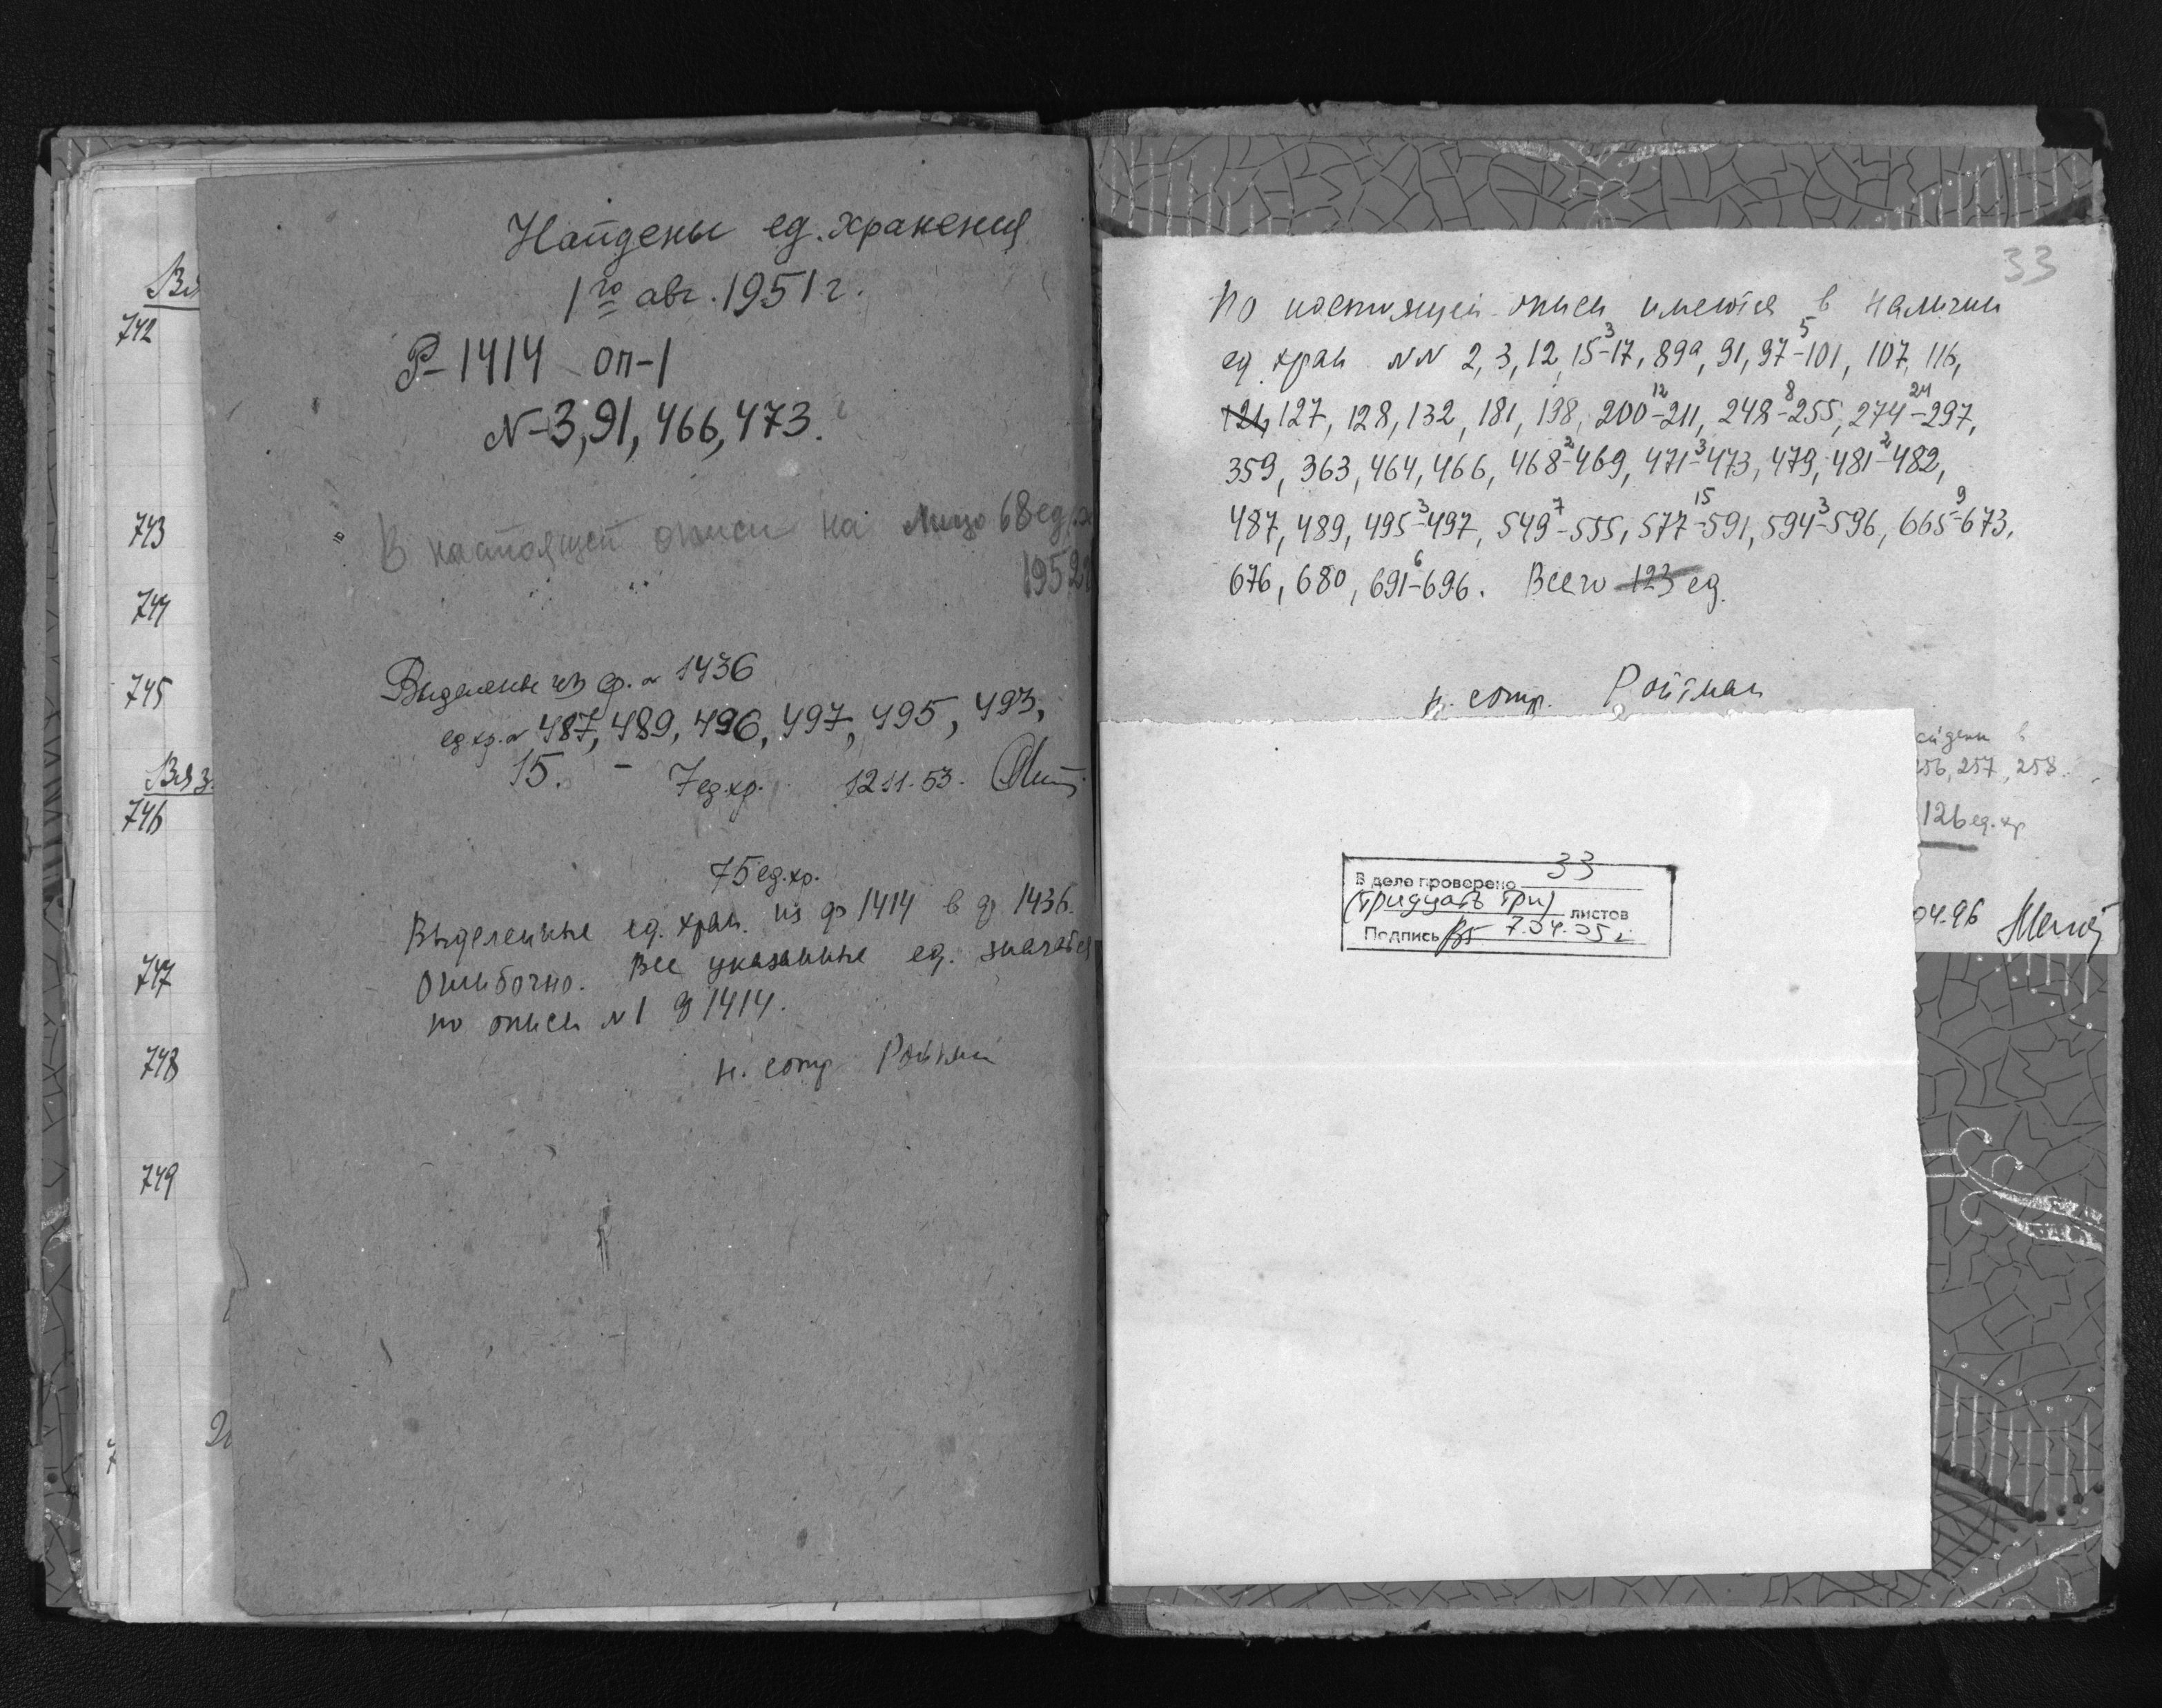 Вя
742
743
744
745
Вяз.
746
747
748
749
Найдены ед. хранения
1го авг. 1951 г.
Р-1414 оп-1
N-3, 91, 466, 473.
В настоящей описи на лицо 68 ед. х
1952
Выделены из ф. N 1436
ед. хр. N 487, 489, 496, 497, 495, 493,
15. - 7 ед. хр. 12.11.53.
75 ед. хр.
Выделенные ед. хран. из ф 1414 в ф 1436
ошибочно. Все указанные ед. значатся
по описи N 1 ф 1414.
н. сотр Ройтман
33
По настоящей описи имеются в наличии
ед. хран NN 2, 3, 12, 15-³17, 89а, 91, 97-⁵101, 107, 116,
121, 127, 128, 132, 181, 198, 200-¹²211, 248-⁸255, 274-²⁴297,
359, 363, 464, 466, 468-²469, 471-³473, 479, 481-²482,
487, 489, 495-³497, 549-⁷555, 577-¹⁵591, 594-³596, 665-⁹673,
676, 680, 691-⁶696. Всего 123 ед.
н. сотр. Ройтман
йдены в
256, 257, 258.
126 ед. хр
04.96
В деле проверено 33
(тридцать три) листов
Подпись 7.04.05 г.